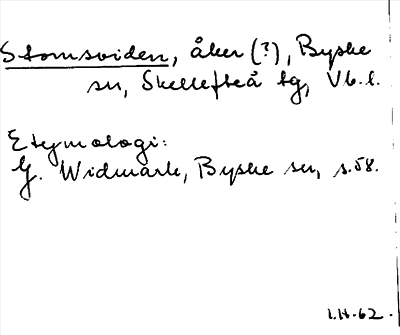 Stomsviden, åker (?), Byske
sn, Skellefteå tg, Vb. l.
Etymologi:
G. Widmark, Byske sn, s. 58.